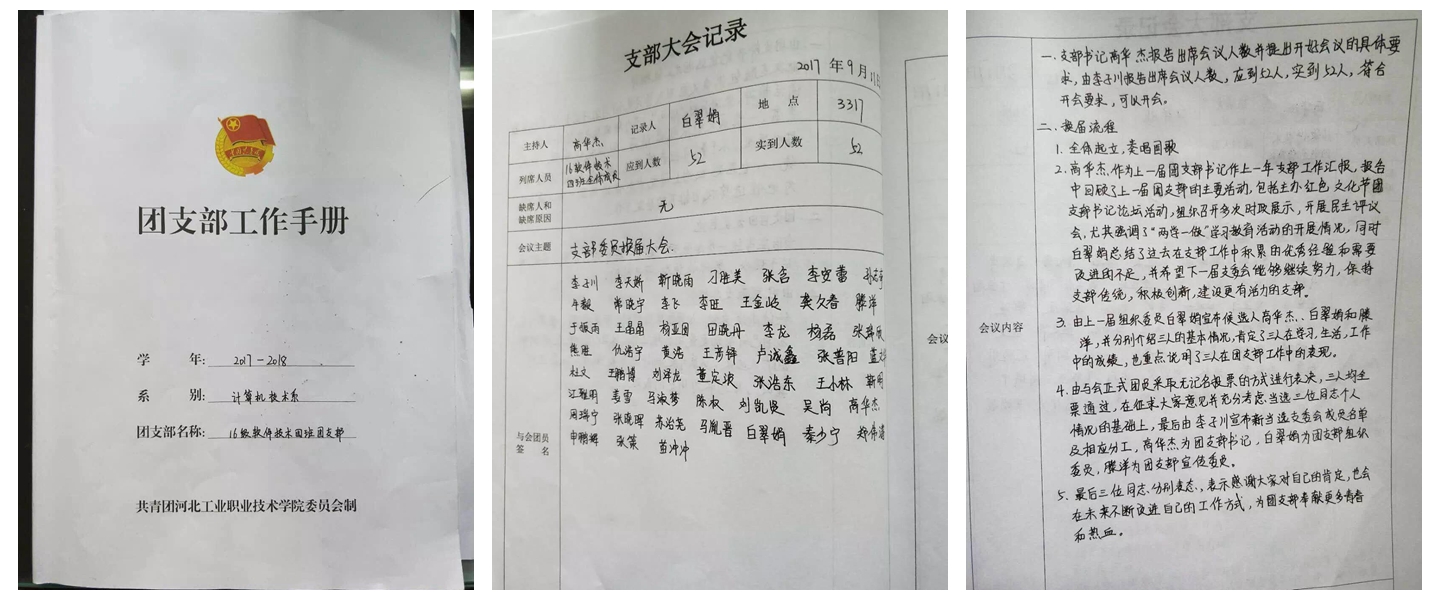 团支部工作手册
学 年: 2017-2018
系 别: 计算机技术系
团支部名称: 16级软件技术四班团支部
共青团河北工业职业技术学院委员会制
支部大会记录
2017 年 9 月 11日
主持人 高华杰 记录人 白翠娟 地 点 3317
列席人员 16软件技术四班全体成员 应到人数 52 实到人数 52
缺席人和缺席原因 无
会议主题 支部委员换届大会.
与会团员签 名
李子川 李天娇 靳晓雨 刁胜美 张含 李安蕾
牛毅 常晓宇 李飞 李旺 王金岐 龚久春 滕洋
于振雨 王晶晶 杨亚团 田晓丹 李龙 杨磊
熊胜 仇浩宇 黄浩 王彦铎 卢诚鑫 张普阳
杜文 王鹏博 刘泽龙 董定波 张浩东 王小林
江程明 姜雪 马淑梦 陈权 刘凯贤 吴尚 高华杰
周瑞宁 张晓晖 苏治尧 马胤晋 白翠娟 秦少宁
申鹏辉 张策 苗冲冲
会议内容
一. 支部书记高华杰报告出席会议人数并提出开好会议的具体要
求,由李子川报告出席会议人数,应到52人,实到52人,符合
开会要求,可以开会。
二. 换届流程
1. 全体起立,奏唱国歌
2. 高华杰作为上一届团支部书记作上一年支部工作汇报,报告
中回顾了上一届团支部的主要活动,包括主办红色文化节团
支部书记论坛活动,组织召开多次时政展示,开展民主评议
会,尤其强调了“两学一做”学习教育活动的开展情况,同时
白翠娟总结了过去在支部工作中积累的优秀经验和需要
改进的不足,并希望下一届支委会能够继续努力,保持
支部传统,积极创新,建设更有活力的支部。
3. 由上一届组织委员白翠娟宣布候选人高华杰、白翠娟和滕
洋,并分别介绍三人的基本情况,肯定了三人在学习,生活,工作
中的成绩,也重点说明了三人在团支部工作中的表现。
4. 由与会正式团员采取无记名投票的方式进行表决,三人均全
票通过,在征求大家意见并充分考虑当选三位同志个人
情况的基础上,最后由李子川宣布新当选支委会成员名单
及相应分工,高华杰为团支部书记,白翠娟为团支部组织
委员,滕洋为团支部宣传委员。
5. 最后三位同志分别表态,表示感谢大家对自己的肯定,也会
在未来不断改进自己的工作方式,为团支部奉献更多青春
和热血。